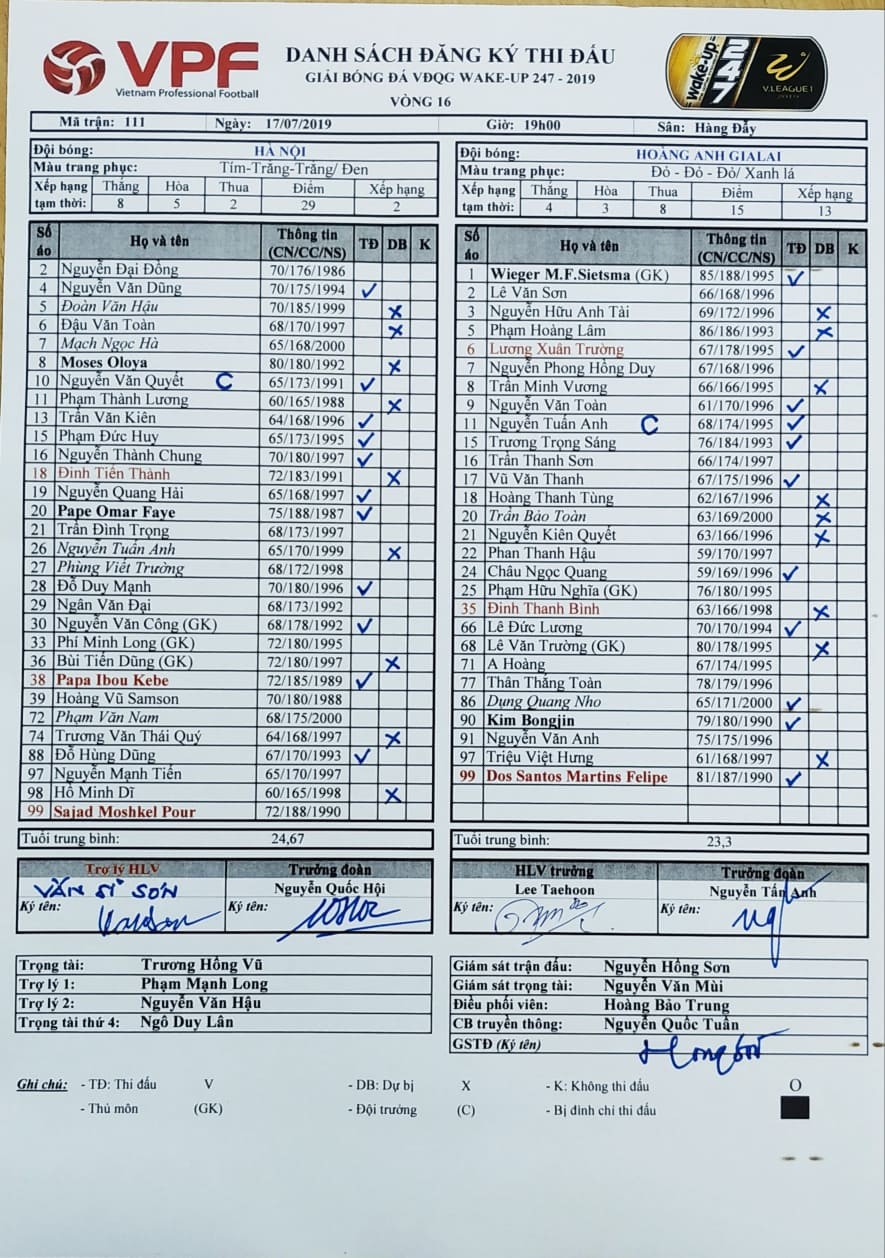 VPF
Vietnam Professional Football
DANH SÁCH ĐĂNG KÝ THI ĐẤU
GIẢI BÓNG ĐÁ VĐQG WAKE-UP 247 - 2019
VÒNG 16
wake-up 247 V.LEAGUE 1
Mã trận: 111 Ngày: 17/07/2019 Giờ: 19h00 Sân: Hàng Đẫy
Đội bóng: HÀ NỘI
Màu trang phục: Tím-Trắng-Trắng/ Đen
Xếp hạng tạm thời: Thắng Hòa Thua Điểm Xếp hạng
8 5 2 29 2
Số áo Họ và tên Thông tin (CN/CC/NS) TĐ DB K
2 Nguyễn Đại Đồng 70/176/1986
4 Nguyễn Văn Dũng 70/175/1994 ✓
5 Đoàn Văn Hậu 70/185/1999 X
6 Đậu Văn Toàn 68/170/1997 X
7 Mạch Ngọc Hà 65/168/2000
8 Moses Oloya 80/180/1992 X
10 Nguyễn Văn Quyết C 65/173/1991 ✓
11 Phạm Thành Lương 60/165/1988 X
13 Trần Văn Kiên 64/168/1996 ✓
15 Phạm Đức Huy 65/173/1995 ✓
16 Nguyễn Thành Chung 70/180/1997 ✓
18 Đinh Tiến Thành 72/183/1991 X
19 Nguyễn Quang Hải 65/168/1997 ✓
20 Pape Omar Faye 75/188/1987 ✓
21 Trần Đình Trọng 68/173/1997
26 Nguyễn Tuấn Anh 65/170/1999 X
27 Phùng Viết Trường 68/172/1998
28 Đỗ Duy Mạnh 70/180/1996 ✓
29 Ngân Văn Đại 68/173/1992
30 Nguyễn Văn Công (GK) 68/178/1992 ✓
33 Phí Minh Long (GK) 72/180/1995
36 Bùi Tiến Dũng (GK) 72/180/1997 X
38 Papa Ibou Kebe 72/185/1989 ✓
39 Hoàng Vũ Samson 70/180/1988
72 Phạm Văn Nam 68/175/2000
74 Trương Văn Thái Quý 64/168/1997 X
88 Đỗ Hùng Dũng 67/170/1993 ✓
97 Nguyễn Mạnh Tiến 65/170/1997
98 Hồ Minh Dĩ 60/165/1998 X
99 Sajad Moshkel Pour 72/188/1990
Tuổi trung bình: 24,67
Trợ lý HLV Trưởng đoàn
VĂN SỸ SƠN Nguyễn Quốc Hội
Ký tên: Ký tên:
Đội bóng: HOÀNG ANH GIALAI
Màu trang phục: Đỏ - Đỏ - Đỏ/ Xanh lá
Xếp hạng tạm thời: Thắng Hòa Thua Điểm Xếp hạng
4 3 8 15 13
Số áo Họ và tên Thông tin (CN/CC/NS) TĐ DB K
1 Wieger M.F.Sietsma (GK) 85/188/1995 ✓
2 Lê Văn Sơn 66/168/1996
3 Nguyễn Hữu Anh Tài 69/172/1996 X
5 Phạm Hoàng Lâm 86/186/1993 X
6 Lương Xuân Trường 67/178/1995 ✓
7 Nguyễn Phong Hồng Duy 67/168/1996
8 Trần Minh Vương 66/166/1995 X
9 Nguyễn Văn Toàn 61/170/1996 ✓
11 Nguyễn Tuấn Anh C 68/174/1995 ✓
15 Trương Trọng Sáng 76/184/1993 ✓
16 Trần Thanh Sơn 66/174/1997
17 Vũ Văn Thanh 67/175/1996 ✓
18 Hoàng Thanh Tùng 62/167/1996 X
20 Trần Bảo Toàn 63/169/2000 X
21 Nguyễn Kiên Quyết 63/166/1996 X
22 Phan Thanh Hậu 59/170/1997
24 Châu Ngọc Quang 59/169/1996 ✓
25 Phạm Hữu Nghĩa (GK) 76/180/1995
35 Đinh Thanh Bình 63/166/1998 X
66 Lê Đức Lương 70/170/1994 ✓
68 Lê Văn Trường (GK) 80/178/1995 X
71 A Hoàng 67/174/1995
77 Thân Thắng Toàn 78/179/1996
86 Dụng Quang Nho 65/171/2000 ✓
90 Kim Bongjin 79/180/1990 ✓
91 Nguyễn Văn Anh 75/175/1996
97 Triệu Việt Hưng 61/168/1997 X
99 Dos Santos Martins Felipe 81/187/1990 ✓
Tuổi trung bình: 23,3
HLV trưởng Trưởng đoàn
Lee Taehoon Nguyễn Tấn Anh
Ký tên: Ký tên:
Trọng tài: Trương Hồng Vũ
Trợ lý 1: Phạm Mạnh Long
Trợ lý 2: Nguyễn Văn Hậu
Trọng tài thứ 4: Ngô Duy Lân
Giám sát trận đấu: Nguyễn Hồng Sơn
Giám sát trọng tài: Nguyễn Văn Mùi
Điều phối viên: Hoàng Bảo Trung
CB truyền thông: Nguyễn Quốc Tuấn
GSTĐ (Ký tên)
Ghi chú: - TĐ: Thi đấu V - DB: Dự bị X - K: Không thi đấu O
- Thủ môn (GK) - Đội trưởng (C) - Bị đình chỉ thi đấu